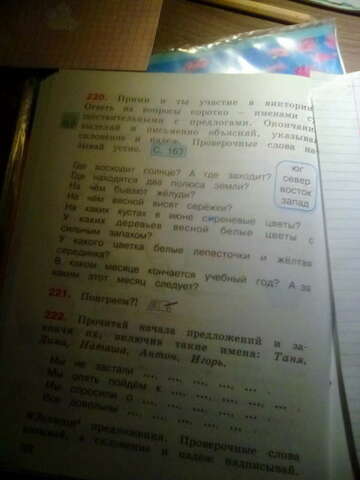 220. Прими и ты участие в викторине
Ответь на вопросы коротко – именами су
ществительными с предлогами. Окончания
выделяй и письменно объясняй, указывая
склонение и падеж. Проверочные слова на
зывай устно. С. 167
Где восходит солнце? А где заходит?
Где находятся два полюса земли?
На чём бывают жёлуди?
На чём весной висят серёжки?
На каких кустах в июне сиреневые цветы?
У каких деревьев весной белые цветы с
сильным запахом?
У какого цветка белые лепесточки и жёлтая
серединка?
В каком месяце кончается учебный год? А за
каким этот месяц следует?
юг
север
восток
запад
221. Поиграем?!
222. Прочитай начала предложений и за-
кончи их, включив такие имена: Таня,
Дима, Наташа, Антон, Игорь.
Мы не застали ...., ...., ...., ...., .... .
Мы опять пойдём к ...., ...., ...., ...., .... .
Мы спросили о ...., ...., ...., ...., .... .
Все довольны ...., ...., ...., ...., .... .
предложения. Проверочные слова
, а склонение и падеж надписывай.